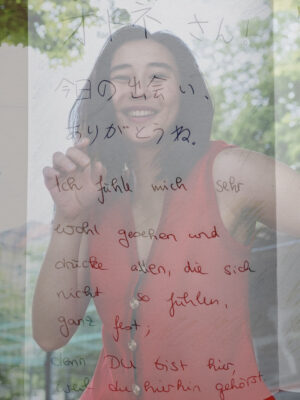 オトネ さん!
今日の出会い、
ありがとうね。
Ich fühle mich sehr
wohl gesehen und
drücke allen, die sich
nicht so fühlen,
ganz fest;
denn Du bist hier,
weil du hierhin gehörst